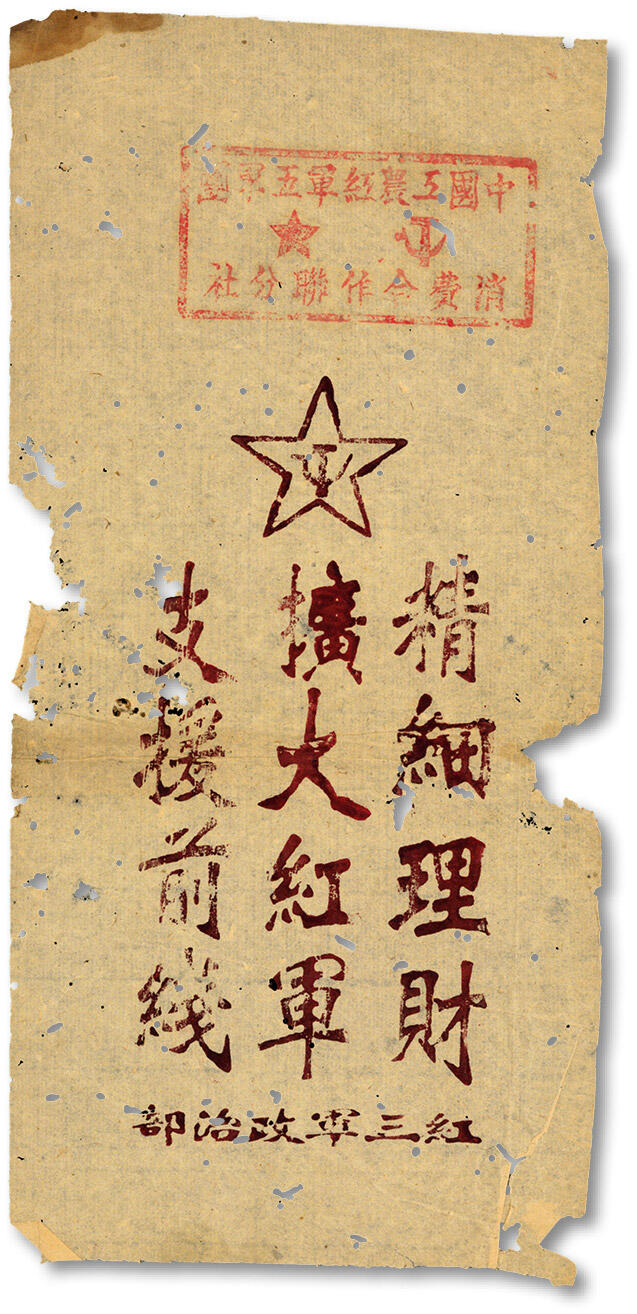 中國工農紅軍五軍團
消費合作聯分社
精細理財
擴大紅軍
支援前綫
紅三軍政治部